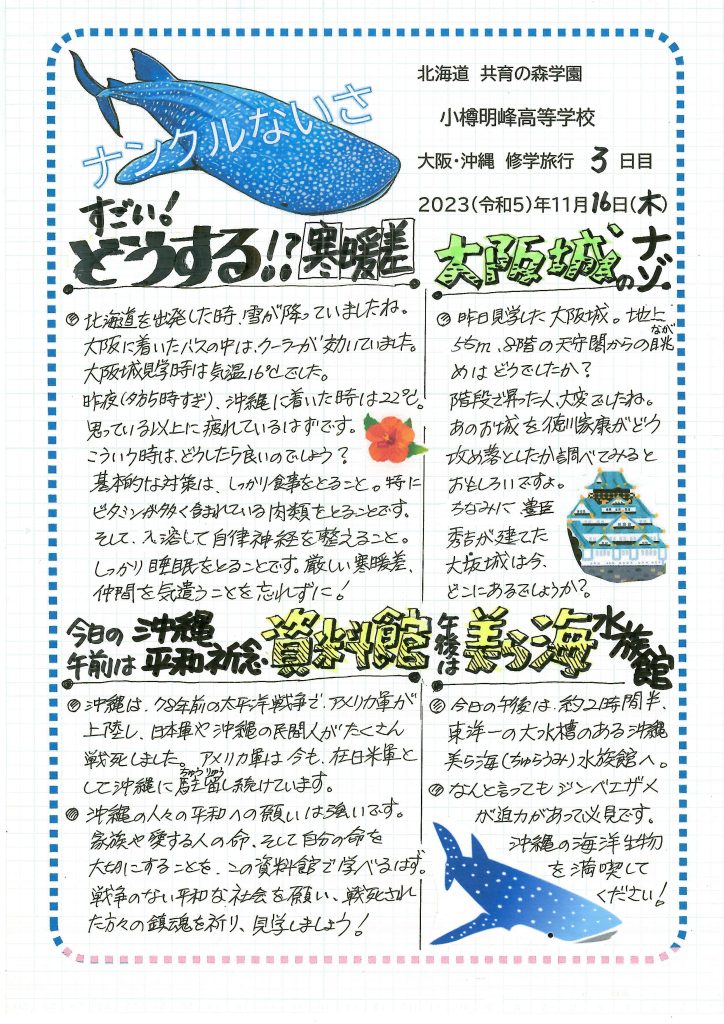 ナンクルないさ
北海道 共育の森学園
小樽明峰高等学校
大阪・沖縄 修学旅行 3 日目
2023(令和5)年11月16日(木)
すごい!
どうする!!? 寒暖差
◎ 北海道を出発した時、雪が降っていましたね。
大阪に着いたバスの中は、クーラーが効いていました。
大阪城見学時は気温16℃でした。
昨夜(夕方5時すぎ)、沖縄に着いた時は22℃。
思っている以上に疲れているはずです。
こういう時は、どうしたら良いのでしょう?
基本的な対策は、しっかり食事をとること。特に
ビタミンが多く含まれている肉類をとることです。
そして、入浴して自律神経を整えること。
しっかり睡眠をとることです。厳しい寒暖差、
仲間を気遣うことを忘れずに!
大阪城のナゾ
◎ 昨日見学した大阪城。地上
55m、8階の天守閣からの眺
なが
めはどうでしたか?
階段で昇った人、大変でしたね。
あのお城を徳川家康がどう
攻め落としたか調べてみると
おもしろいですよ。
ちなみに豊臣
秀吉が建てた
大坂城は今、
どこにあるでしょうか?
今日の午前は 沖縄平和祈念資料館
◎ 沖縄は、78年前の太平洋戦争で、アメリカ軍が
上陸し、日本軍や沖縄の民間人がたくさん
戦死しました。アメリカ軍は今も、在日米軍と
ちゅうりゅう
して沖縄に駐留し続けています。
◎ 沖縄の人々の平和への願いは強いです。
家族や愛する人の命、そして自分の命を
大切にすることを、この資料館で学べるはず。
戦争のない平和な社会を願い、戦死され
た方々の鎮魂を祈り、見学しましょう!
午後は 美ら海水族館
◎ 今日の午後は、約2時間半、
東洋一の大水槽のある沖縄
美ら海(ちゅらうみ)水族館へ。
◎ なんと言ってもジンベエザメ
が迫力があって必見です。
沖縄の海洋生物
を満喫して
ください!